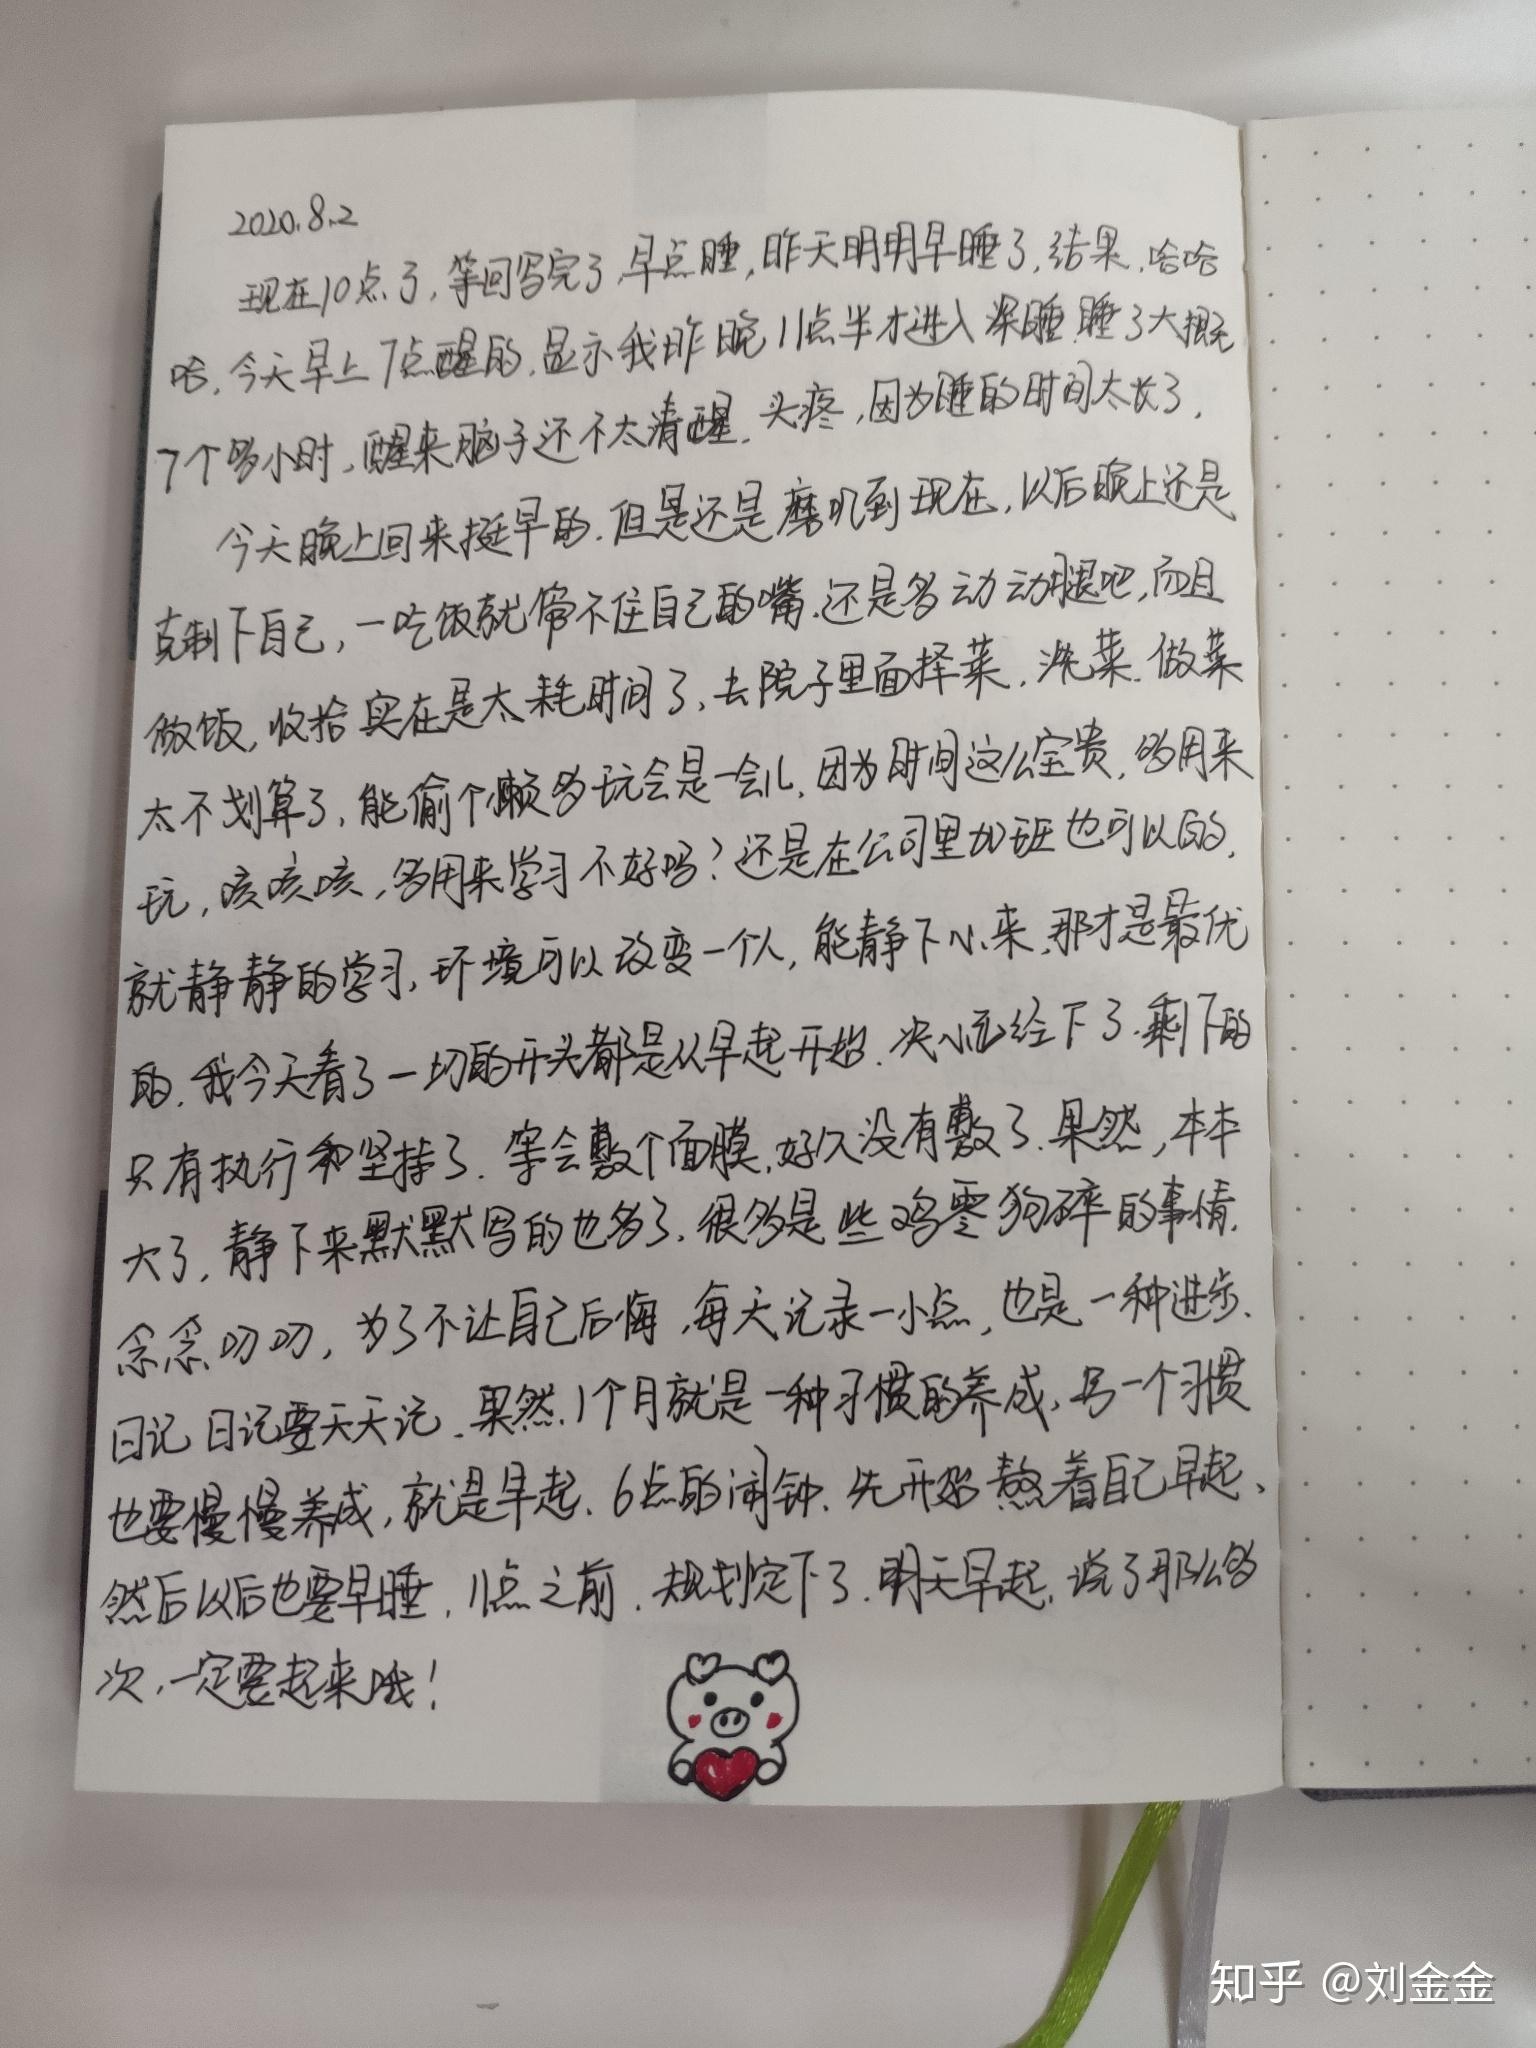 2020.8.2
现在10点了,等回写完了,早点睡,昨天明明早睡了,结果,哈哈
哈,今天早上7点醒的,显示我昨晚11点半才进入深睡,睡了大概
7个多小时,醒来脑子还不太清醒,头疼,因为睡的时间太长了,
今天晚上回来挺早的,但是还是磨叽到现在,以后晚上还是
克制下自己,一吃饭就管不住自己的嘴,还是多动动腿吧,而且
做饭,收拾实在是太耗时间了,去院子里面择菜,洗菜,做菜
太不划算了,能偷个懒多玩会是一会儿,因为时间这么宝贵,多用来
玩,咳咳咳,多用来学习不好吗?还是在公司里加班也可以的,
就静静的学习,环境可以改变一个人,能静下心来,那才是最优
的,我今天看了一切的开头都是从早起开始,决心已经下了,剩下的
只有执行和坚持了.等会敷个面膜,好久没有敷了.果然,本本
大了,静下来默默写的也多了,很多是些鸡零狗碎的事情,
念念叨叨,为了不让自己后悔,每天记录一小点,也是一种进步、
日记日记要天天记.果然,1个月就是一种习惯的养成,另一个习惯
也要慢慢养成,就是早起、6点的闹钟、先开始熬着自己早起、
然后以后也要早睡,11点之前,规划定下了.明天早起,说了那么多
次,一定要起来哦!
知乎 @刘金金